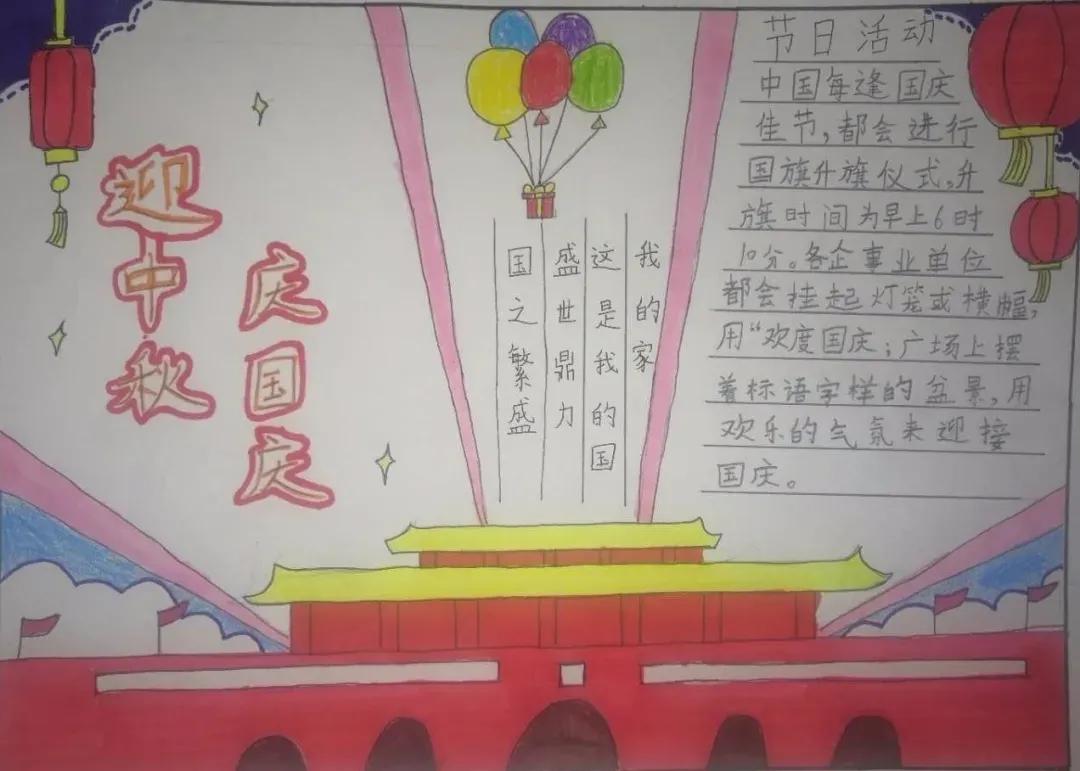 迎中秋
庆国庆
我的家
这是我的国
盛世鼎力
国之繁盛
节日活动
中国每逢国庆
佳节,都会进行
国旗升旗仪式,升
旗时间为早上6时
10分。各企事业单位
都会挂起灯笼或横幅,
用“欢度国庆;广场上摆
着标语字样的盆景,用
欢乐的气氛来迎接
国庆。